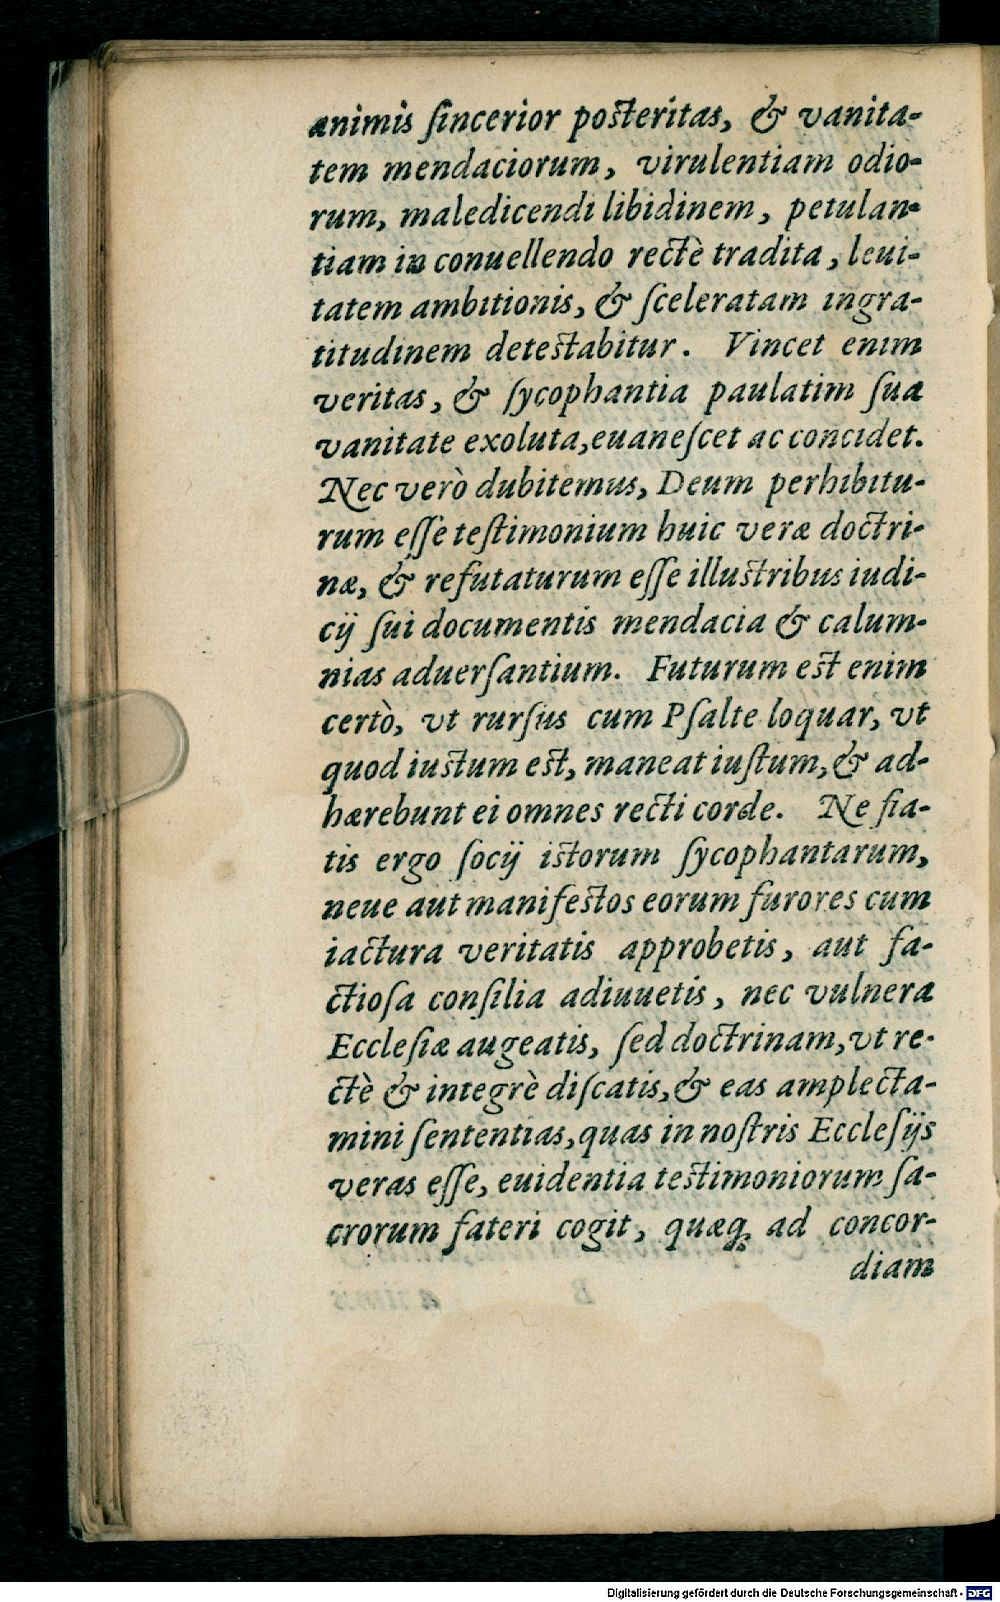 animis ſincerior poſteritas, & vanita-
tem mendaciorum, virulentiam odio-
rum, maledicendi libidinem, petulan-
tiam in conuellendo rectè tradita, leui-
tatem ambitionis, & ſceleratam ingra-
titudinem deteſtabitur. Vincet enim
veritas, & ſycophantia paulatim ſua
vanitate exoluta, euaneſcet ac concidet.
Nec verò dubitemus, Deum perhibitu-
rum eſſe teſtimonium huic veræ doctri-
næ, & refutaturum eſſe illuſtribus iudi-
cij ſui documentis mendacia & calum-
nias aduerſantium. Futurum eſt enim
certò, vt rurſus cum Pſalte loquar, vt
quod iuſtum eſt, maneat iuſtum, & ad-
hærebunt ei omnes recti corde. Ne fia-
tis ergo ſocij iſtorum ſycophantarum,
neue aut manifeſtos eorum furores cum
iactura veritatis approbetis, aut fa-
ctioſa conſilia adiuuetis, nec vulnera
Eccleſiæ augeatis, ſed doctrinam, vt re-
ctè & integrè diſcatis, & eas amplecta-
mini ſententias, quas in noſtris Eccleſijs
veras eſſe, euidentia teſtimoniorum ſa-
crorum fateri cogit, quæq; ad concor-
diam
Digitalisierung gefördert durch die Deutsche Forschungsgemeinschaft - DFG